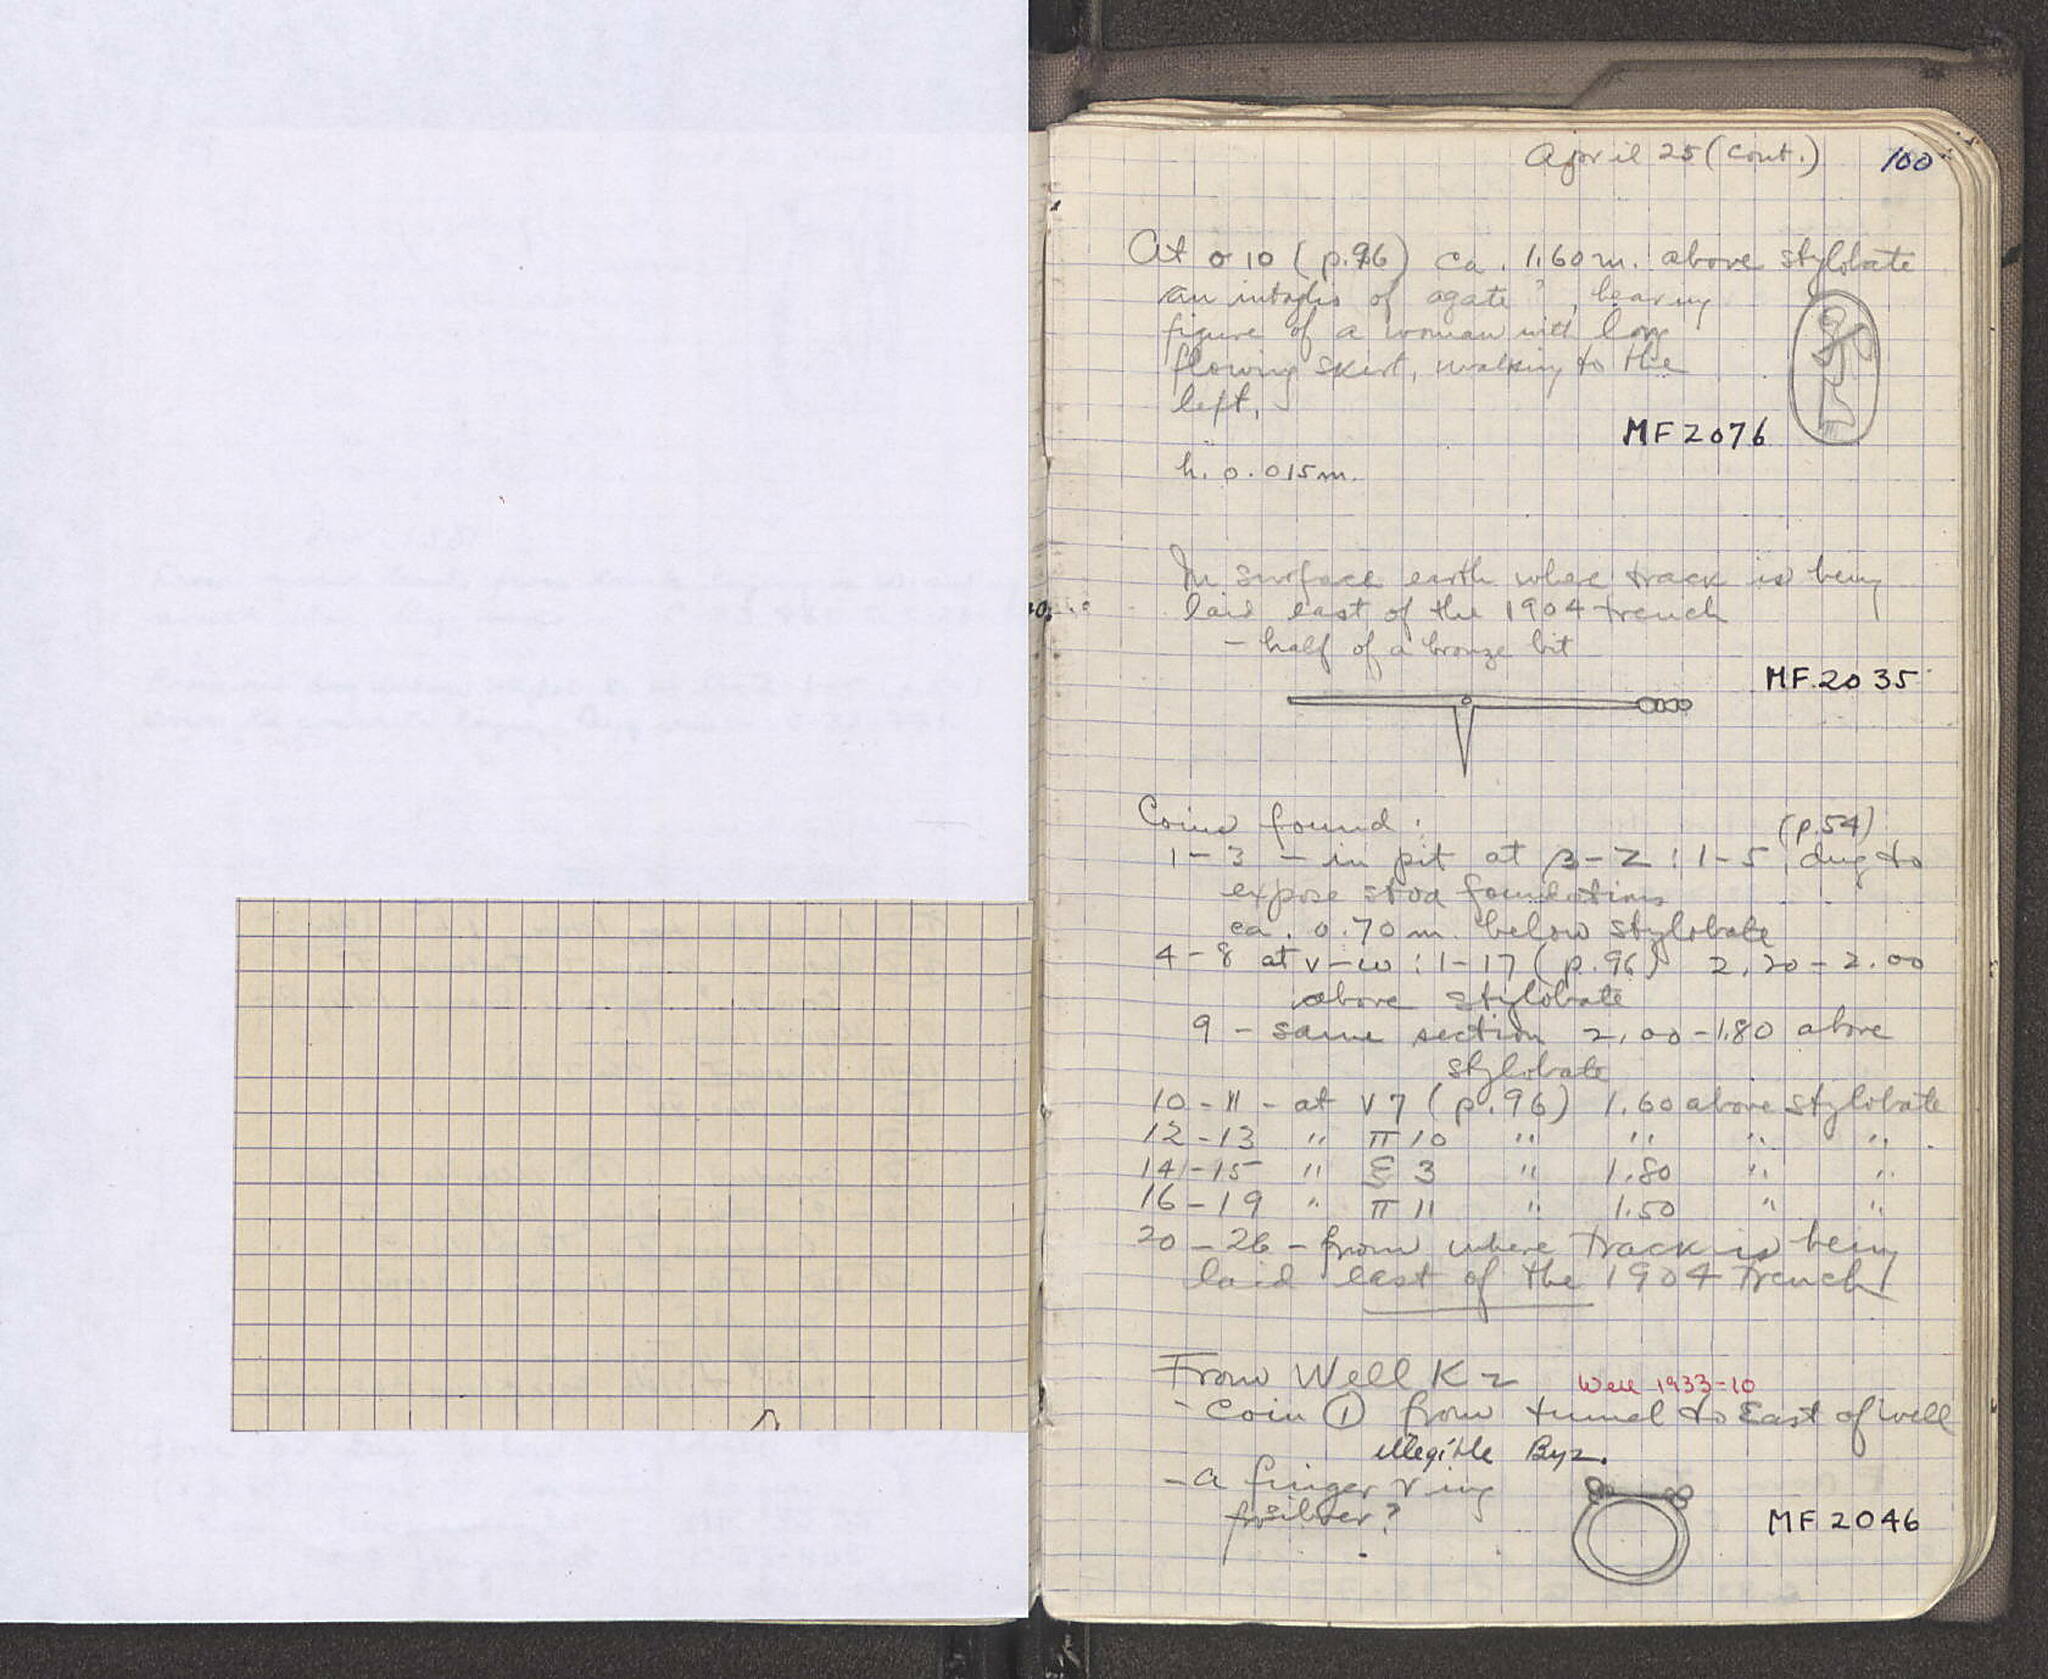 April 25 (cont.) 100
At o 10 (p.96) ca. 1.60 m. above stylobate
an intaglio of agate ?, bearing
figure of a woman with long
flowing skirt, walking to the
left.
MF 2076
h. 0.015 m.
In surface earth where track is being
laid east of the 1904 trench
- half of a bronze bit
MF 2035
Coins found: (p.54)
1-3 - in pit at β-Z : 1-5, dug to
expose stoa foundations
ca. 0.70 m. below stylobate
4-8 at v-ω : 1-17 (p.96) 2.20-2.00
above stylobate
9 - same section 2.00-1.80 above
stylobate
10-11 - at v 7 (p.96) 1.60 above stylobate
12-13 " π 10 " " " "
14-15 " ξ 3 " 1.80 " "
16-19 " π 11 " 1.50 " "
20-26 - from where track is being
laid east of the 1904 trench
From Well K 2 Well 1933-10
- Coin ① from tunnel to East of well
illegible Byz.
- a finger ring
silver?
MF 2046